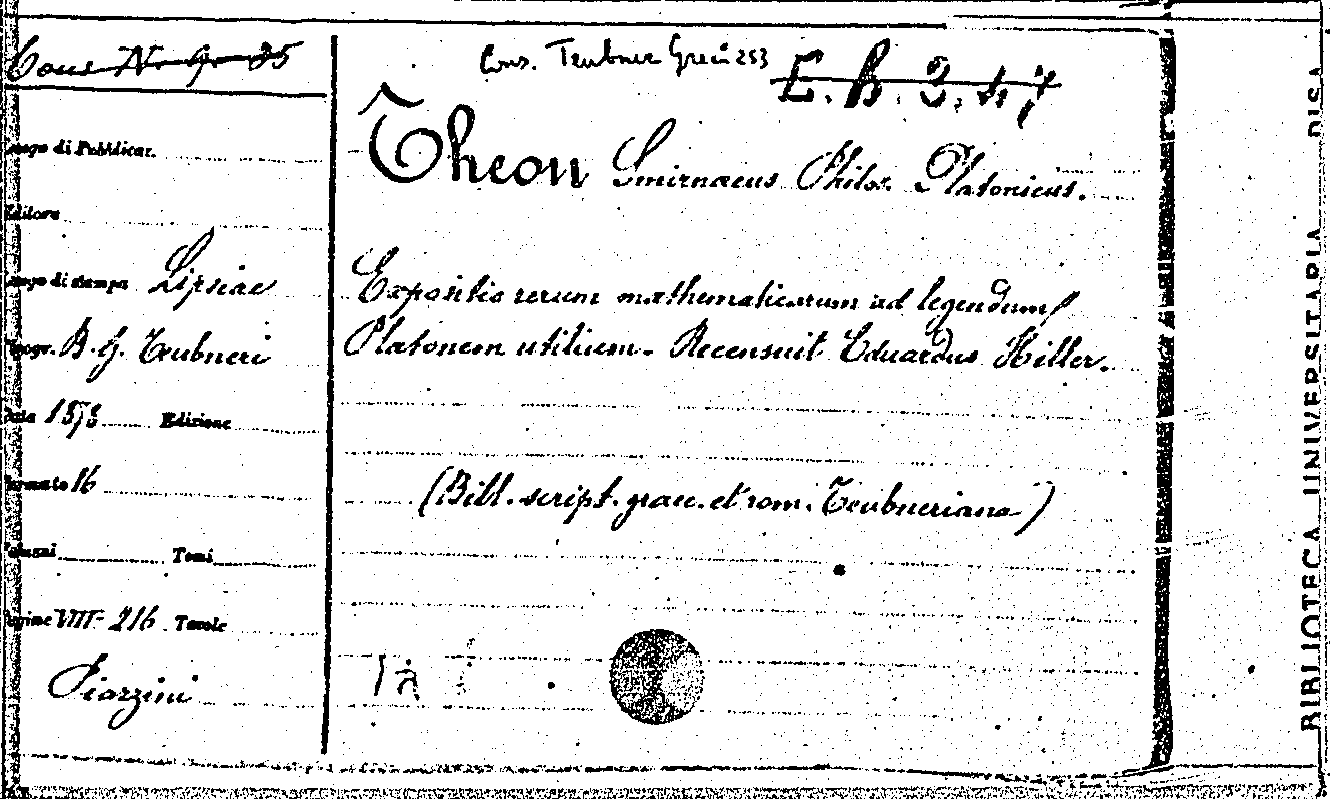 Cons. N. 9. 35
Cons. Teubner Greci 253
E. B. 2. 47
Theon Smirnaeus Philos. Platonicus.
Luogo di Pubblicaz.
Editore
Luogo di stampa Lipsiae
Expositio rerum mathematicarum ad legendum
Tipogr. B. G. Teubneri
Platonem utilium. Recensuit Eduardus Hiller.
Data 1878 Edizione
Formato 16
(Bibl. script. graec. et rom. Teubneriana)
Volumi Tomi
Pagine VIII-216 Tavole
Piazzini
BIBLIOTECA UNIVERSITARIA PISA